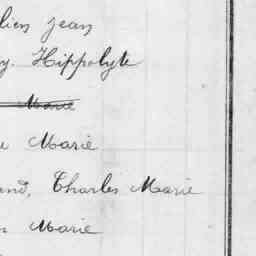 lien Jean
y. Hippolyte
Marie
Marie
and, Charles Marie
Marie